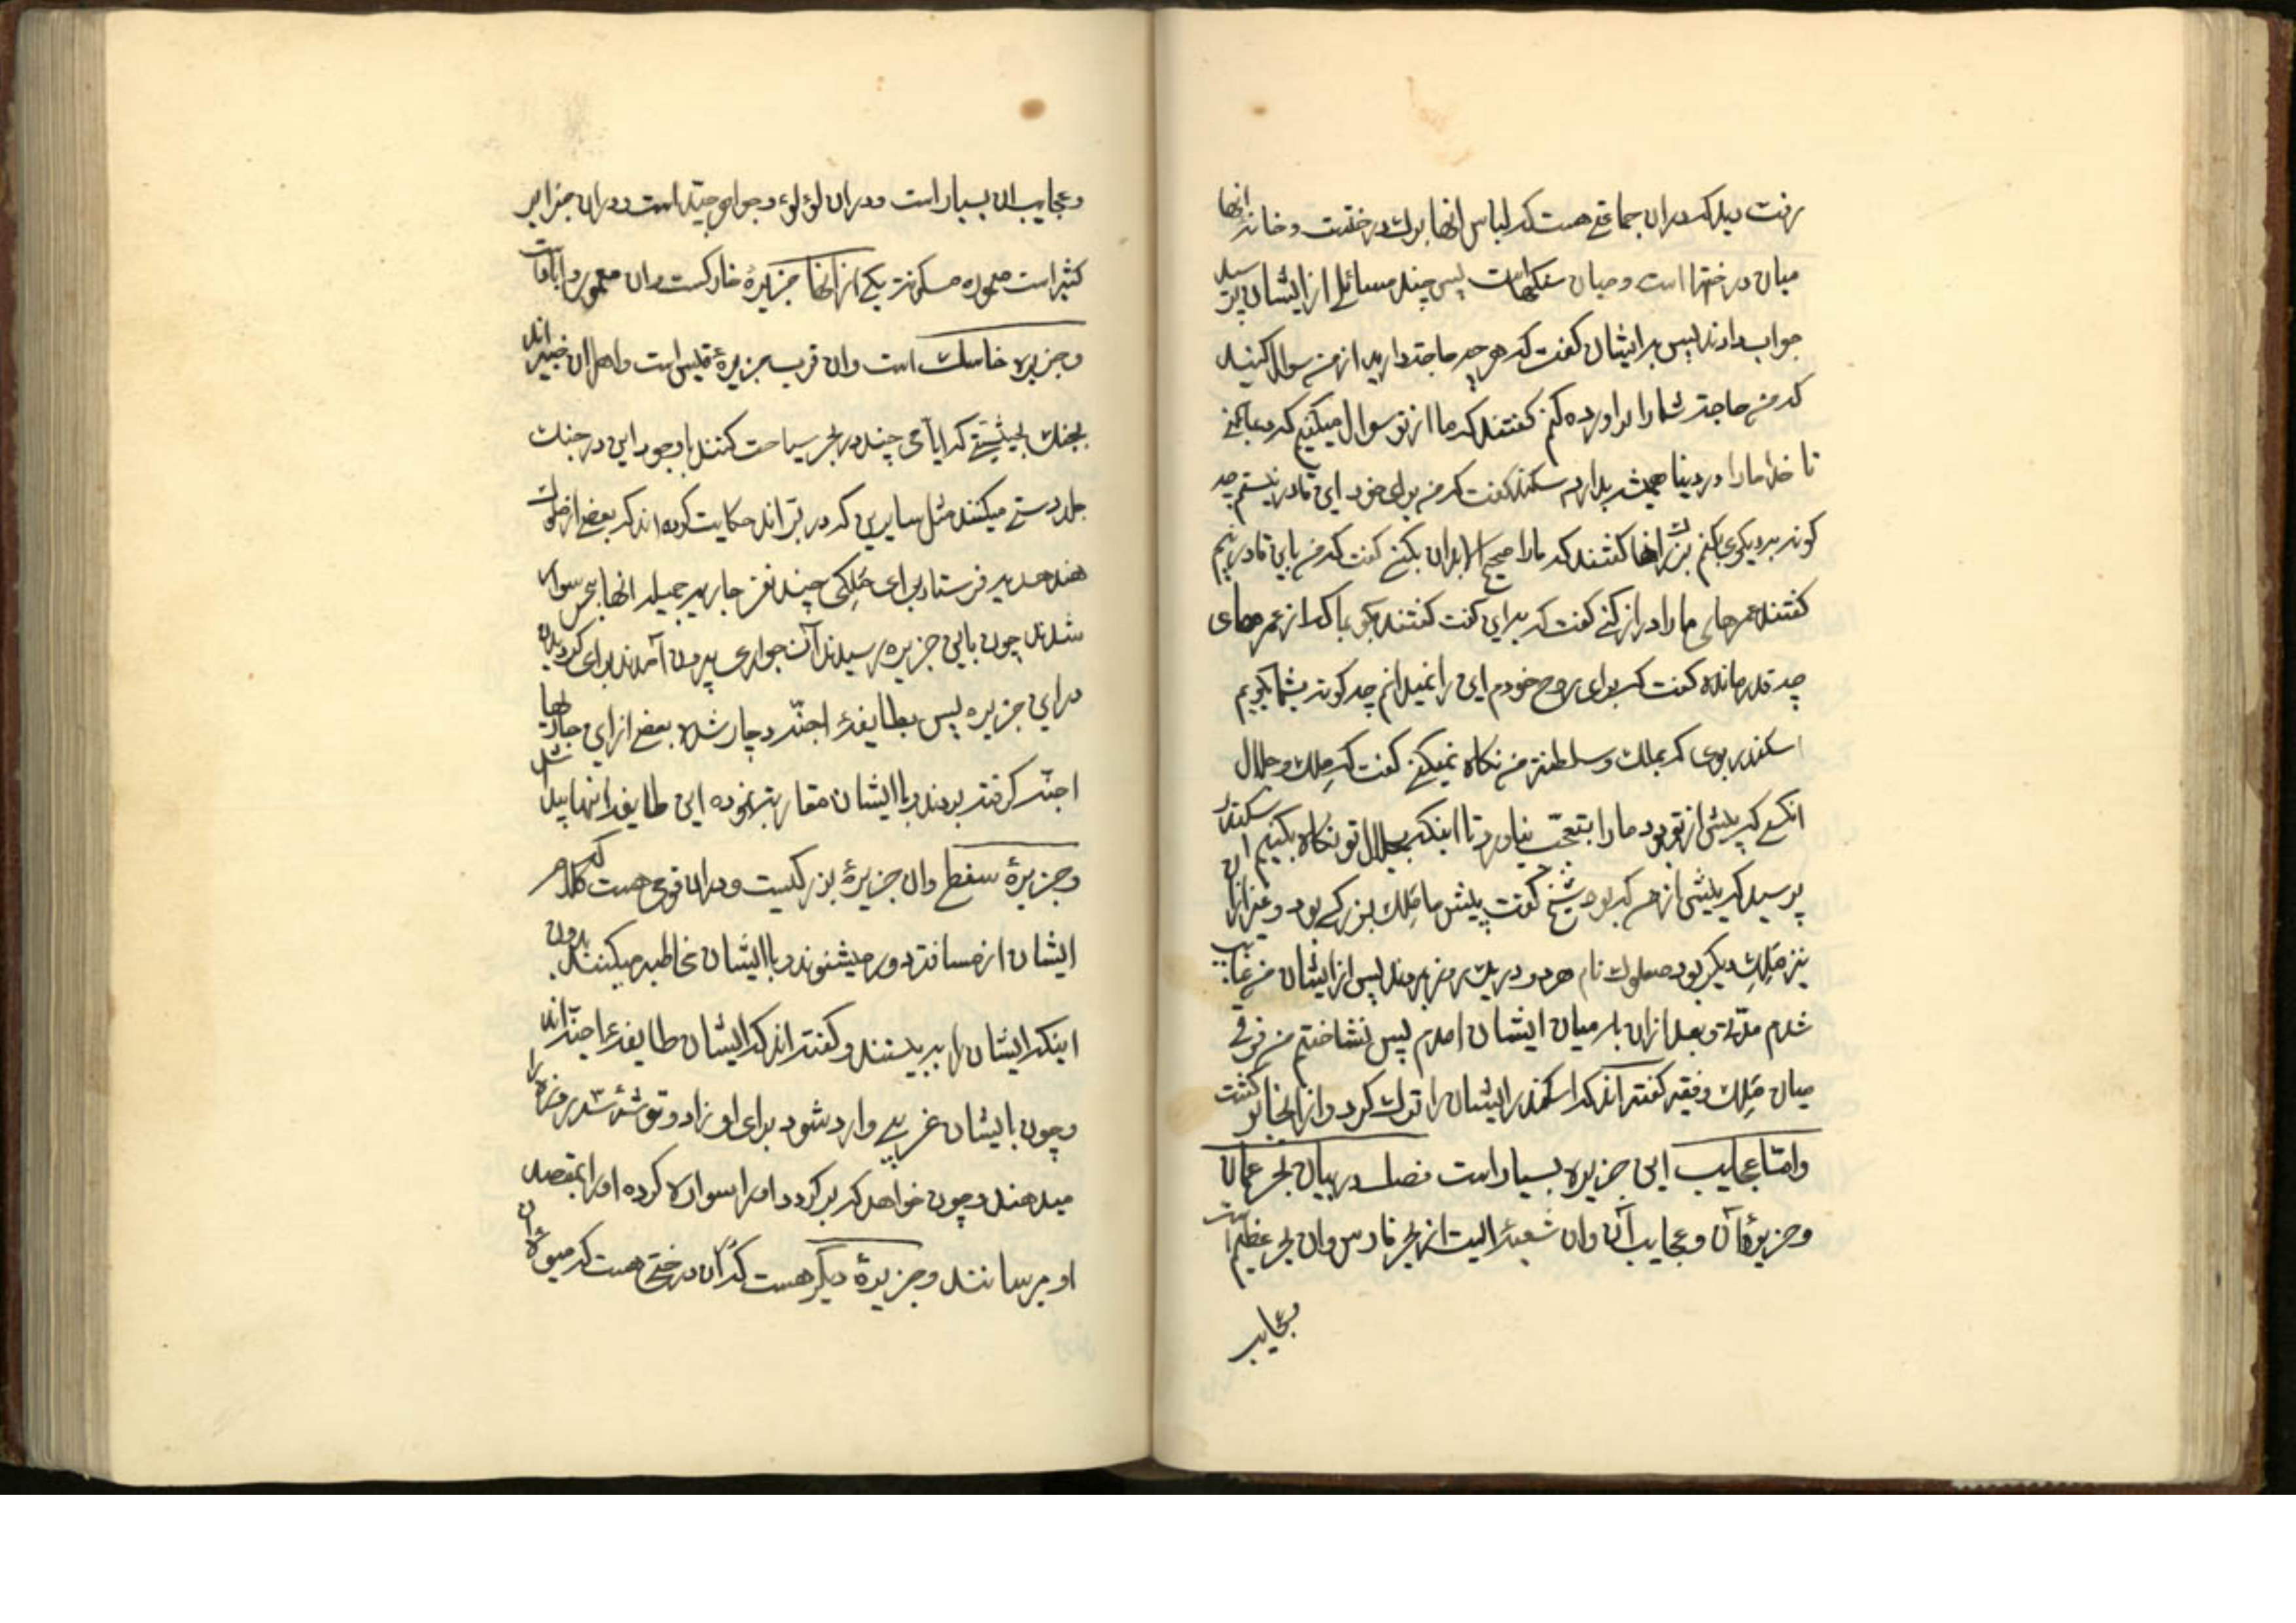 رفت دید که در ان جماعتی هست که لباس انها برك درختست و خانه انها
میان درختها است و میان سنکهاست پس چند مسائل از ایشان پرسید
جواب دادند پس بر ایشان کفت که هر چه حاجت دارید از من سوال کنید
که من حاجت شما را براورده کنم کفتند که ما از تو سوال میکنیم که
تا خدا ما را در دنیا همیشه بدارد سکندر کفت که من برای خود این قادر نیستم چه
کونه بدیکری بکنم انها کفتند که ما را صحیح ابدان بکنی کفت که من باین قادر نیم
کفتند عمرهای ما را دراز کنی کفت که برای کفت کفتند بکو بما که از عمرهای
چه قدر مانده کفت که برای روح خودم این را نمیدانم چه کونه بشما بکویم
اسکندر بوی که بملك و سلطنة من نکاه نمیکنی کفت که ملك و جلال
انکس که پیش از تو بود ما را بتعجب نیاورد تا اینکه بجلال تو نکاه بکنیم سکندر
پرسید که پیش از من که بود شیخ کفت پیش ما ملك بزرکی بود و غیر از ان
نیز ملك دیکر بود صعلوك نام هر دو در یك روز بمردند پس از ایشان من غایب
شدم مدتی و بعد از ان بار میان ایشان امدم پس نشناختم من فرقی
میان ملك و فقیر کفته اند که اسکندر ایشان را ترك کرد و از انجا بر کشت
و امّا عجایب این جزیره بسیار است فصل در بیان بحر عمان
و جزیرهٔ آن و عجایب آن و ان شعبه الیست از بحر فارس و ان بحر عظیم است
و عجایب
و عجایب ان بسیار است و در ان لؤلؤ و جواهر جیّد است و در ان جزایر
کثیر است معموره مسکونه یکی از انها جزیرهٔ خارکست و ان معمور و ابادان است
و جزیره خاسك است و ان قریب جزیرهٔ قیس است و اهل ان خبیر اند
بجنك بحیثیتی که ایامی چند در بحر سیاحت کنند با وجود این در جنك
جلد دستی میکنند مثل سایرین که در بر اند حکایت کرده اند که بعضی از ملوك
هند هدیه فرستاد برای ملکی چند نفر جاریه جمیله انها بحر سوار
شدند چون باین جزیره رسیدند آن جواری بیرون آمدند برای کردیدن
در این جزیره پس بطایفهٔ اجنّه دچار شده بعضی از این جاریها
اجنّه کرفته بردند و با ایشان مقاربة نموده این طایفه از انها پیدا شد
و جزیرهٔ سقط و ان جزیرهٔ بزرکیست و در ان قومی هست که کلام
ایشان از مسافة دور میشنوند و با ایشان مخاطبه میکنند بدون
اینکه ایشان را ببینند و کفته اند که ایشان طایفهٔ اجنّه اند
و چون بایشان غریبی وارد شود برای او زاد و توشهٔ سه روزه را
میدهند و چون خواهد که بر کردد او را سواره کرده او را بمقصد
او میرسانند و جزیرهٔ دیکر هست که در ان درختی هست که میوهٔ ان